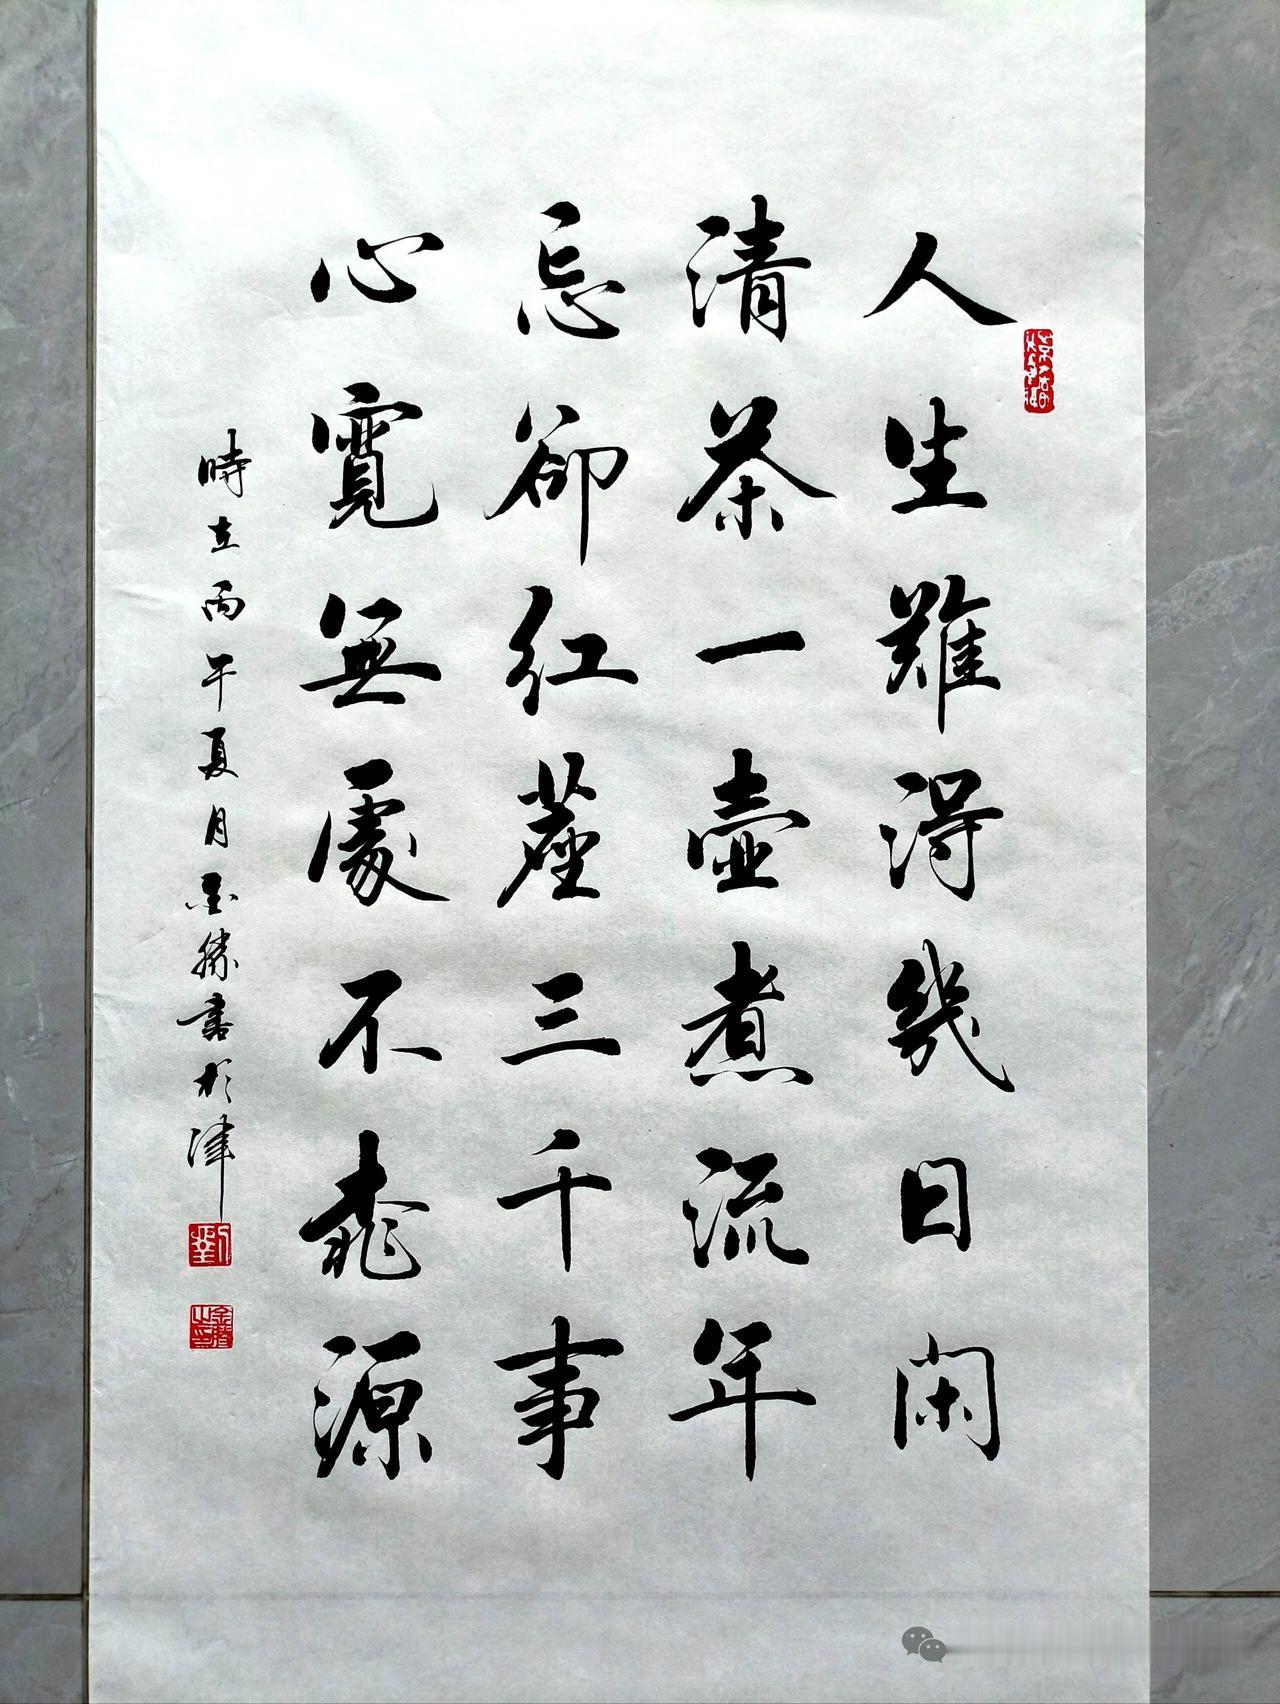 人生難得幾日閑
清茶一壺煮流年
忘卻紅塵三千事
心寬無處不桃源
時在丙午夏月墨勝書於津